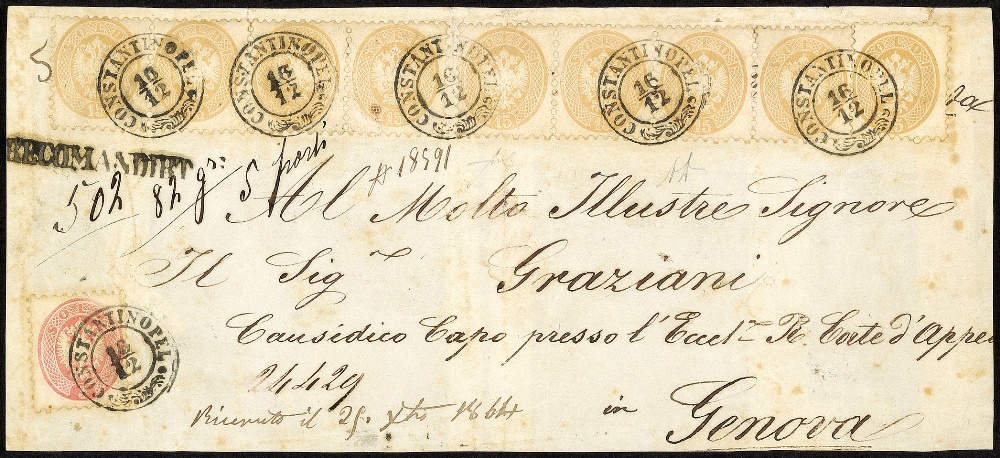 5
CONSTANTINOPEL 16/12
CONSTANTINOPEL 16/12
CONSTANTINOPEL 16/12
CONSTANTINOPEL 16/12
CONSTANTINOPEL 16/12
15 15 15 15
RECOMANDIRT
502 82 gr: 5 porti
# 18591
Al Molto Illustre Signore
Il Sigr
Graziani
Causidico Capo presso l'Eccl- R. Corte d'Appe
CONSTANTINOPEL 16/12
24429
Ricevuto il 25. Xbre 1864
in
Genova